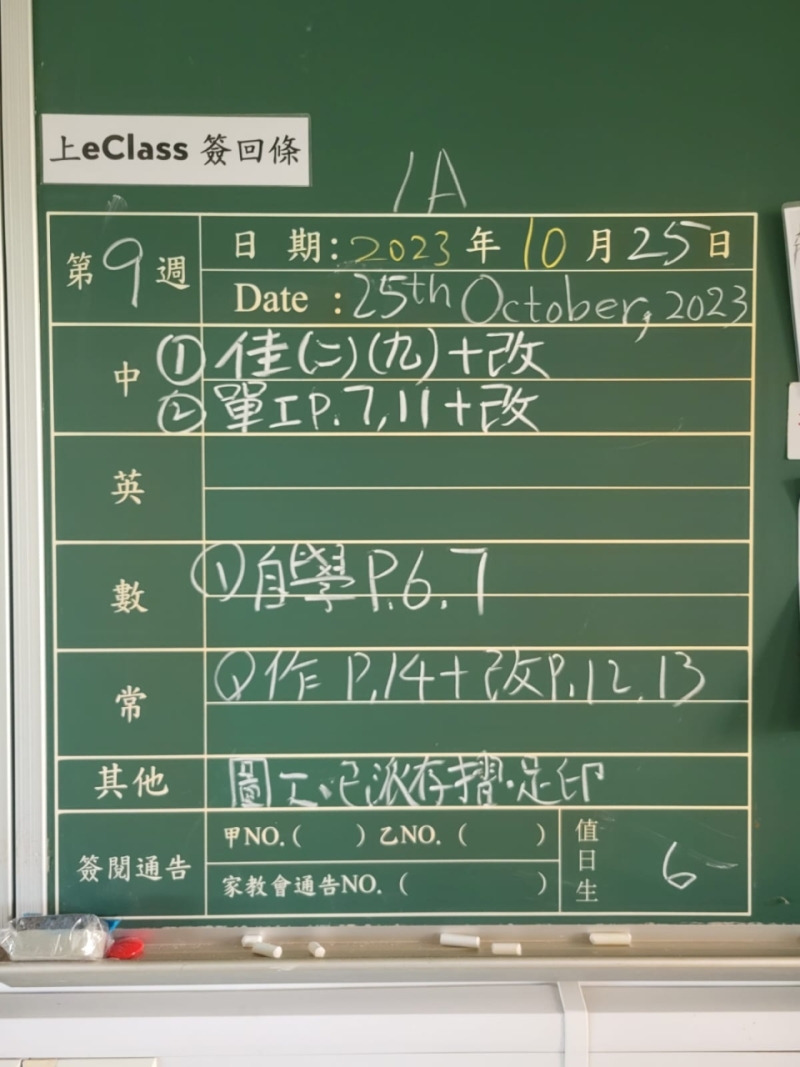 上eClass 簽回條
1A
第9週
日 期:2023年10月25日
Date :25th October, 2023
中
① 佳(二)(九)+改
② 單工P.7,11+改
英
數
① 自學P.6.7
常
作 P.14+改P.12.13
其他
圖工.已派存摺.足印
簽閱通告
甲NO.( ) 乙NO.( )
家教會通告NO.( )
值日生
6